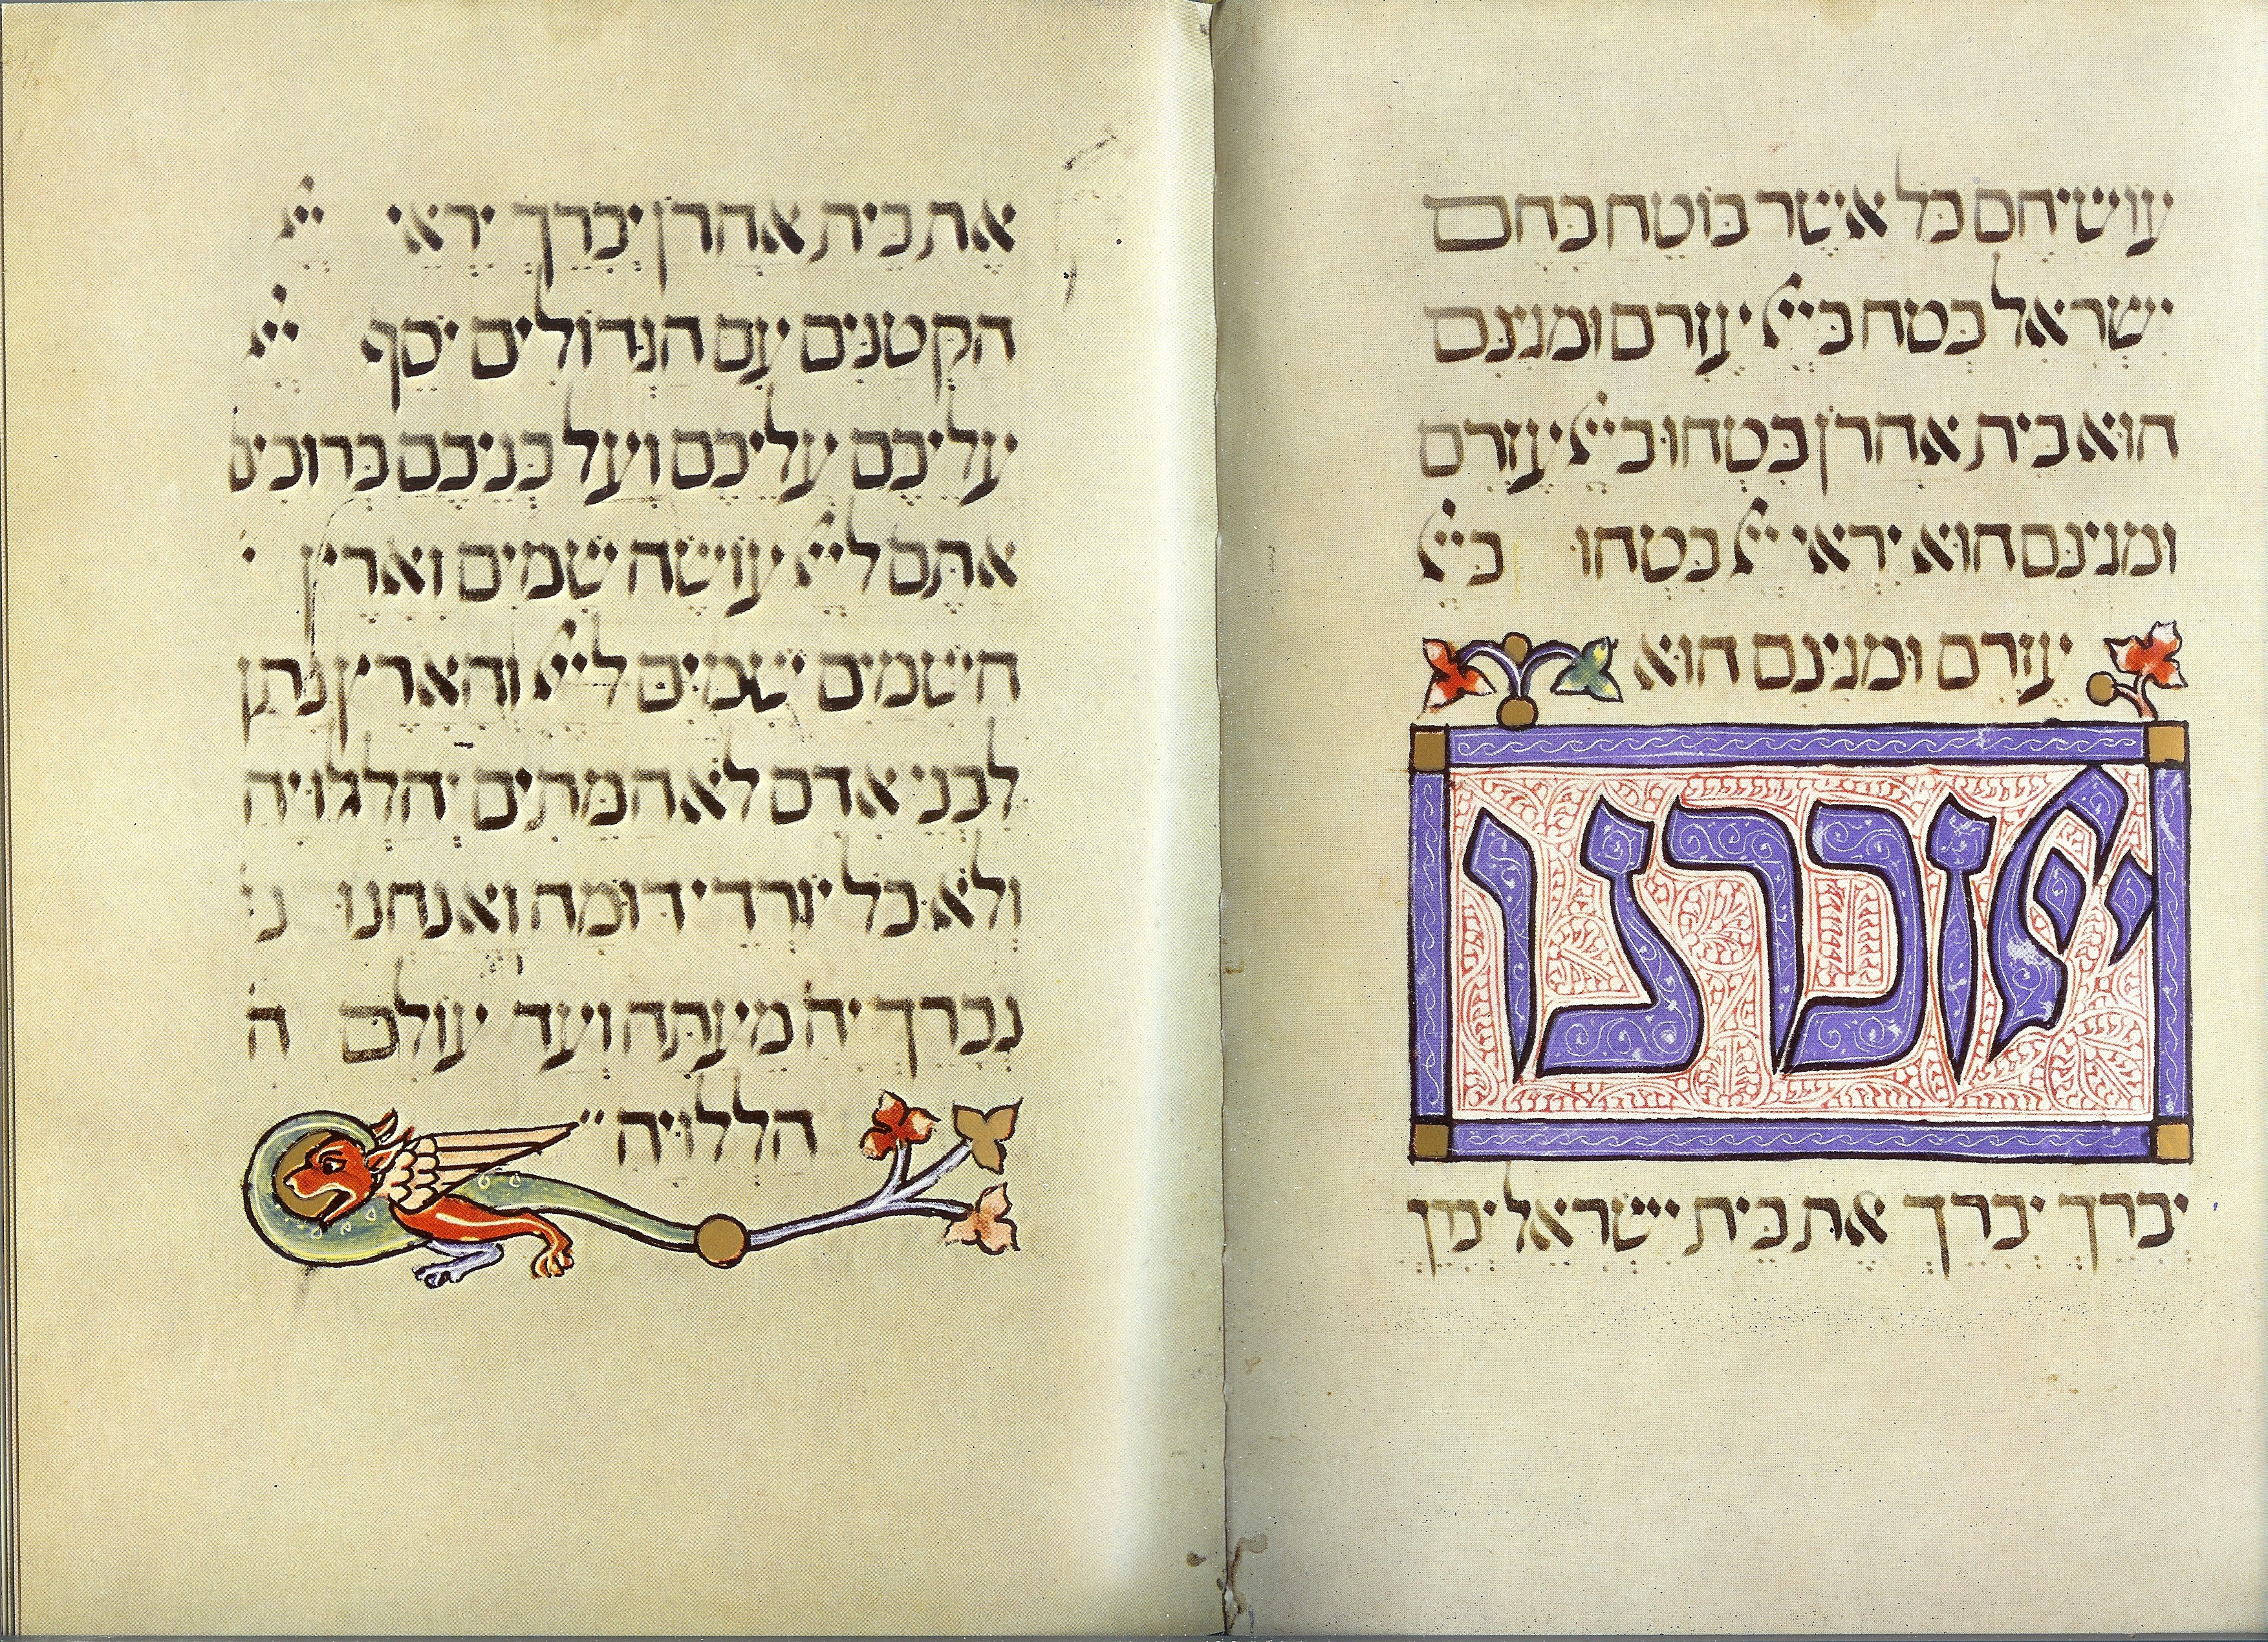 עושיהם כל אשר בוטח בהם
ישראל בטח בייי עזרם ומגינם
הוא בית אהרן בטחו בייי עזרם
ומגינם הוא יראי ייי בטחו בייי
עזרם ומגינם הוא
ייי זכרנו
יברך יברך את בית ישראל יברך
את בית אהרן יברך יראי ייי
הקטנים עם הגדולים יסף ייי
עליכם עליכם ועל בניכם ברוכים
אתם לייי עושה שמים וארץ
השמים שמים לייי והארץ נתן
לבני אדם לא המתים יהללו יה
ולא כל יורדי דומה ואנחנו נ
נברך יה מעתה ועד עולם ה
הללויה